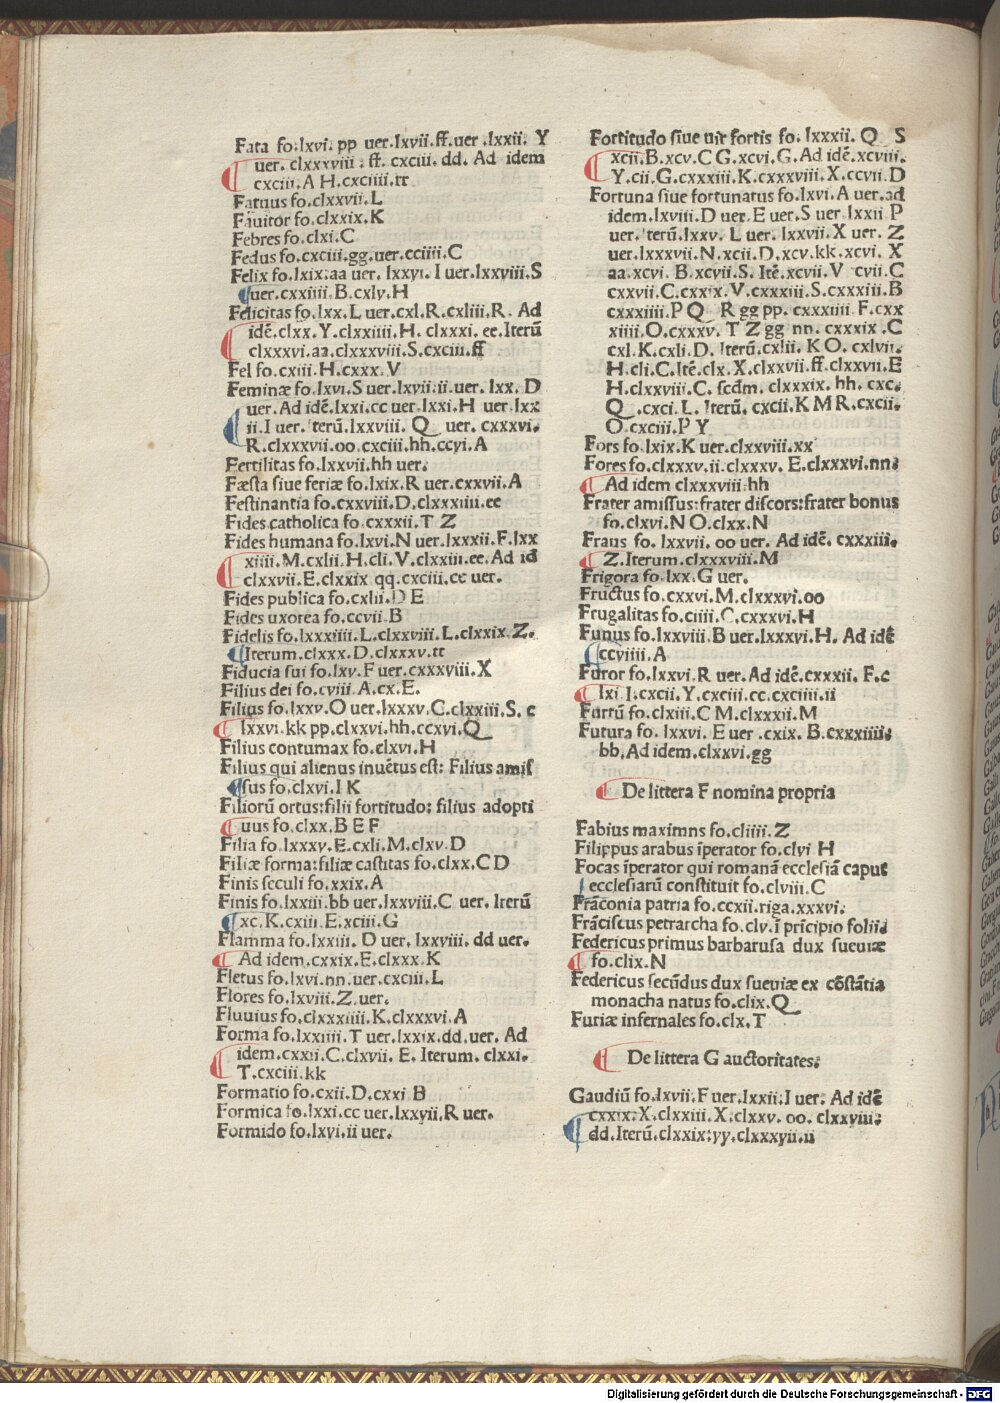 Fata fo.lxvi. pp uer.lxvii.ff.uer .lxxii. Y
uer. clxxxviii . ff. cxciii. dd. Ad idem
cxciii.A H.cxciiii.tt
Fatuus fo.clxxvii.L
Fauitor fo.clxxix.K
Febres fo.clxi.C
Fedus fo.cxciii.gg.uer.cciiii.C
Felix fo.lxix.aa uer. lxxyi. I uer.lxxviii.S
uer.cxxiiii.B.cxly.H
Felicitas fo.lxx.L uer.cxl.R.cxliii.R. Ad
idē.clxx.Y.clxxiiii.H. clxxxi. ee.Iterū
clxxxvi.aa.clxxxviii.S.cxciii.ff
Fel fo.cxiii.H.cxxx.V
Feminæ fo.lxvi.S uer.lxvii.ii.uer. lxx. D
uer.Ad idē.lxxi.cc uer.lxxi.H uer.lxx
ii.I uer. Iterū.lxxviii. Q uer. cxxxvi.
R.clxxxvii.oo.cxciii.hh.ccyi.A
Fertilitas fo.lxxvii.hh uer.
Fæsta siue feriæ fo.lxix.R uer.cxxvii.A
Festinantia fo.cxxviii.D.clxxxiiii.ee
Fides catholica fo cxxxii.T Z
Fides humana fo.lxvi.N uer.lxxxii.F.lxx
xiiii.M.cxlii.H.cli.V.clxxiii.ee.Ad id
clxxvii.E.clxxix qq.cxciii.cc uer.
Fides publica fo.cxlii.D E
Fides uxorea fo.ccvii B
Fidelis fo.lxxxiiii.L.clxxviii.L.clxxix.Z.
Iterum.clxxx.D.clxxxv.tt
Fiducia sui fo.lxv.F uer.cxxxviii.X
Filius dei fo.cviii.A.cx.E.
Filius fo.lxxv.O uer.lxxxv.C.clxxiii.S. c
lxxvi.kk pp.clxxvi.hh.ccxvi.Q
Filius contumax fo.clxvi.H
Filius qui alienus inuētus est: Filius amis
sus fo.clxvi.I K
Filiorū ortus:filii fortitudo: filius adopti
uus fo.clxx.B E F
Filia fo.lxxxy.E.cxli.M.clxv.D
Filiæ forma:filiæ castitas fo.clxx.C D
Finis seculi fo.xxix.A
Finis fo.lxxiii.bb uer.lxxviii.C uer. Iterū
xc.K.cxiii.E.xciii.G
Flamma fo.lxxiii. D uer. lxxviii. dd uer.
Ad idem.cxxix.E.clxxx.K
Fletus fo.lxvi.nn.uer.cxciii.L
Flores fo.lxviii.Z uer.
Fluuius fo.clxxxiiii.K.clxxxvi.A
Forma fo.lxxiiii.T uer.lxxix.dd.uer. Ad
idem.cxxii.C.clxvii. E. Iterum. clxxi.
T.cxciii.kk
Formatio fo.cxii.D.cxxi B
Formica fo.lxxi.cc uer.lxxyii.R uer.
Formido fo.lxyi.ii uer.
Fortitudo siue uir fortis fo. lxxxii. Q S
xcii.B.xcv.C G.xcvi.G.Ad idē.xcviii.
Y.cii.G.cxxxiii.K.cxxxviii.X.ccvii.D
Fortuna siue fortunatus fo.lxvi.A uer.ad
idem.lxviii.D uer.E uer.S uer lxxii P
uer. Iterū.lxxv. L uer. lxxvii.X uer. Z
uer.lxxxvii.N.xcii.D.xcv.kk.xcvi. X
aa.xcvi. B.xcvii.S. Itē.xcvii.V cvii.C
cxxvii.C.cxxix.V.cxxxiii.S.cxxxiii.B
cxxxiiii.P Q R gg pp. cxxxiiii F.cxx
xiiii.O.cxxxv. T Z gg nn. cxxxix .C
cxl.K.cxli.D. Iterū.cxlii. K O. cxlvii.
H.cli.C.Itē.clx.X.clxxvii.ff.clxxvii.E
H.clxxviii.C. scdm. clxxxix. hh. cxc.
Q .cxci.L. Iterū. cxcii.K M R.cxcii.
O.cxciii.P Y
Fors fo.lxix.K uer.clxxviii.xx
Fores fo.clxxxv.ii.clxxxv. E.clxxxvi.nn.
Ad idem clxxxviii.hh
Frater amissus:frater discors:frater bonus
fo.clxvi.N O.clxx.N
Fraus fo. lxxvii. oo uer. Ad idē. cxxxiii.
Z.Iterum.clxxxviii.M
Frigora fo.lxx.G uer.
Fructus fo.cxxvi.M.clxxxvi.oo
Frugalitas fo.ciiii.C.cxxxvi.H
Funus fo.lxxviii.B uer.lxxxvi.H. Ad idē
ccviiii.A
Furor fo.lxxvi.R uer.Ad idē.cxxxii. F.c
lxi.I.cxcii.Y.cxciii.cc.cxciiii.ii
Furtū fo.clxiii.C M.clxxxii.M
Futura fo. lxxvi. E uer .cxix. B.cxxxiiii.
bb.Ad idem.clxxvi.gg
De littera F nomina propria
Fabius maximns fo.cliiii.Z
Filippus arabus īperator fo.clyi H
Focas īperator qui romanā ecclesiā caput
ecclesiarū constituit fo.clviii.C
Frāconia patria fo.ccxii.riga.xxxvi.
Frāciscus petrarcha fo.clv.ī prīcipio folii.
Federicus primus barbarusa dux sueuiæ
fo.clix.N
Federicus secūdus dux sueuiæ ex cōstātia
monacha natus fo.clix.Q
Furiæ infernales fo.clx.T
De littera G auctoritates.
Gaudiū fo.lxvii.F uer.lxxii.I uer. Ad idē
cxxix.X.clxxiii.X.clxxv. oo. clxxviii.
dd.Iterū.clxxix.yy.clxxxyii.ii
Digitalisierung gefördert durch die Deutsche Forschungsgemeinschaft - DFG